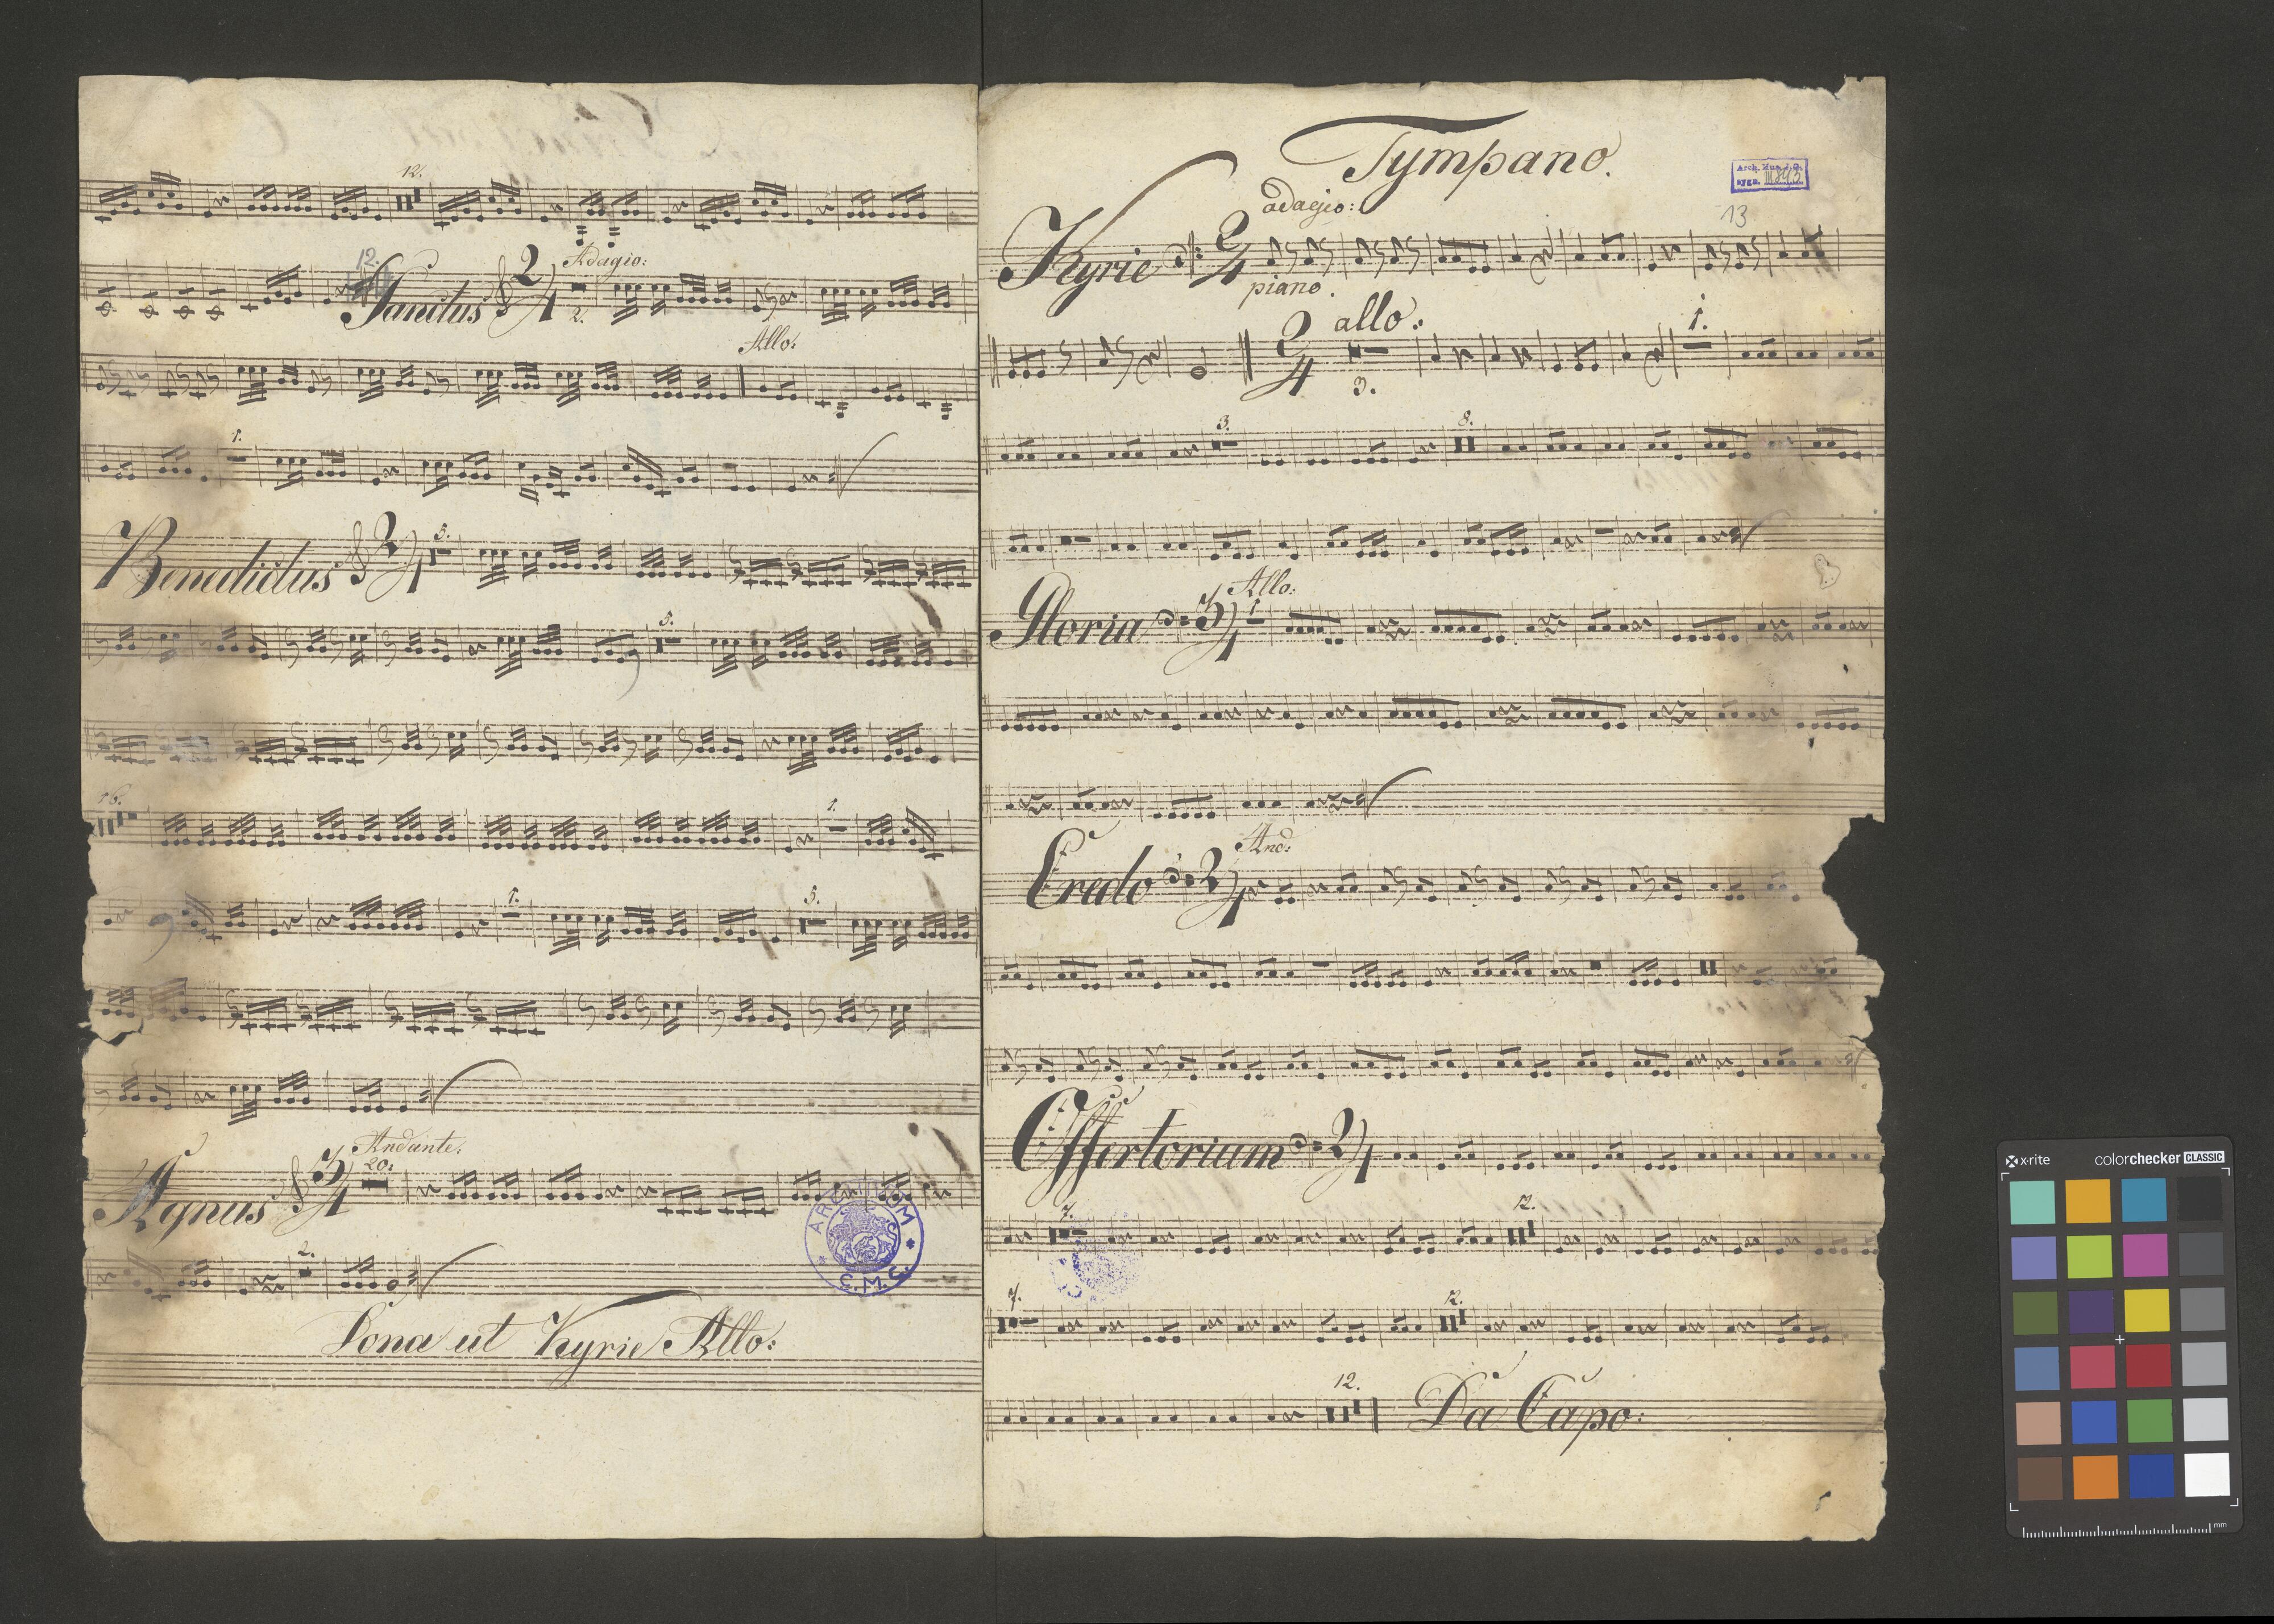 12.
12.
Sanctus 2/4 Adagio:
2.
Allo:
1.
Benedictus 2/4 5.
5.
16.
1.
1.
5.
Agnus 3/4 Andante:
20.
2.
Dona ut Kyrie Allo:
ARCHIVUM
C.M.S.
Tympano.
Arch. Mus. J. G.
sygn. III 843
13
adagio:
Kyrie 2/4
piano.
allo:
2/4
3.
1.
3.
8.
Gloria 3/4 Allo:
1
Credo 3/4 And:
Offertorium 3/4
7.
12.
7.
12.
12.
Da Capo:
x-rite
colorchecker CLASSIC
mm